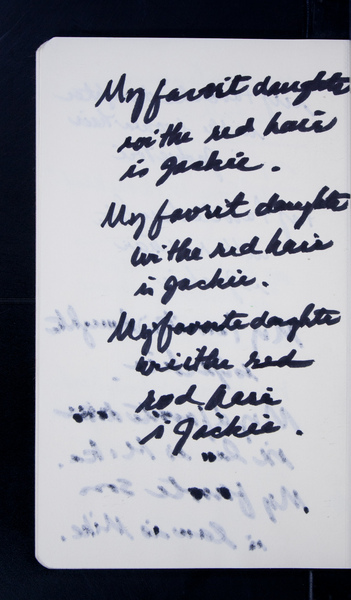 My favorit daughte
withe red hair
is Jackie.
My favorit daughte
withe red hair
is Jackie.
My favorite daughte
withe red
red hair
is Jackie.